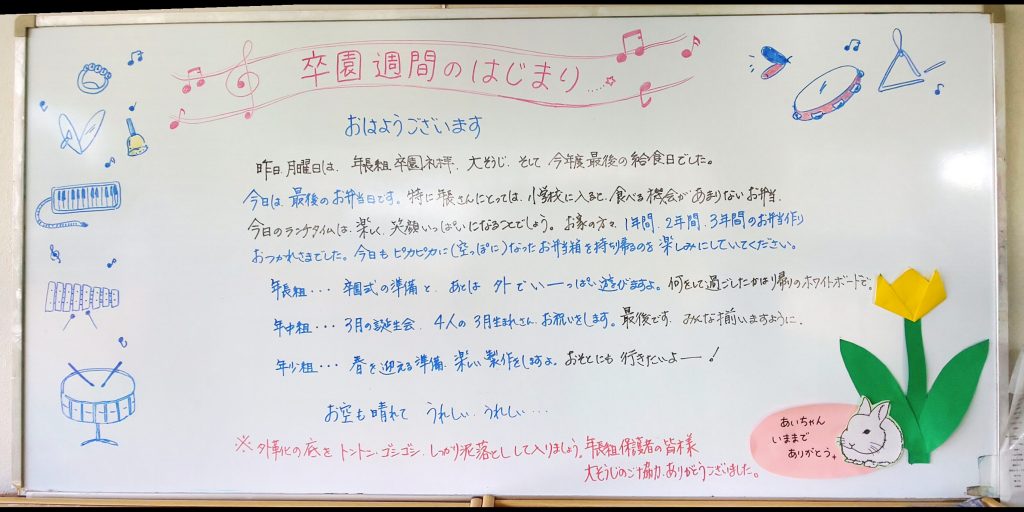 卒園週間のはじまり.....☆
おはようございます
昨日、月曜日は、年長組 卒園礼拝、大そうじ、そして 今年度 最後の給食日でした。
今日は、最後のお弁当日です。特に年長さんにとっては、小学校に入ると、食べる機会が あまりないお弁当、
今日のランチタイムは、楽しく、笑顔いっぱいになることでしょう。 お家の方々、1年間、2年間、3年間のお弁当作り
おつかれさまでした。今日も ピカピカに(空っぽに)なったお弁当箱を持ち帰るのを 楽しみにしていてください。
年長組・・・ 卒園式の準備と、あとは 外で いーーっぱい 遊びますよ。何をして過ごしたかはお帰りのホワイトボードで。
年中組・・・ 3月の誕生会、4人の 3月生まれさん、お祝いをします。最後です、みんな揃いますように。
年少組・・・ 春を迎える準備、楽しい製作をしますよ。おそとにも 行きたいよーー!
お空も晴れて うれしい、うれしい・・・
※ 外靴の底を トントン・ゴシゴシ、しっかり泥落としして入りましょう。年長組保護者の皆様
大そうじのご協力、ありがとうございました。
あいちゃん
いままで
ありがとう。